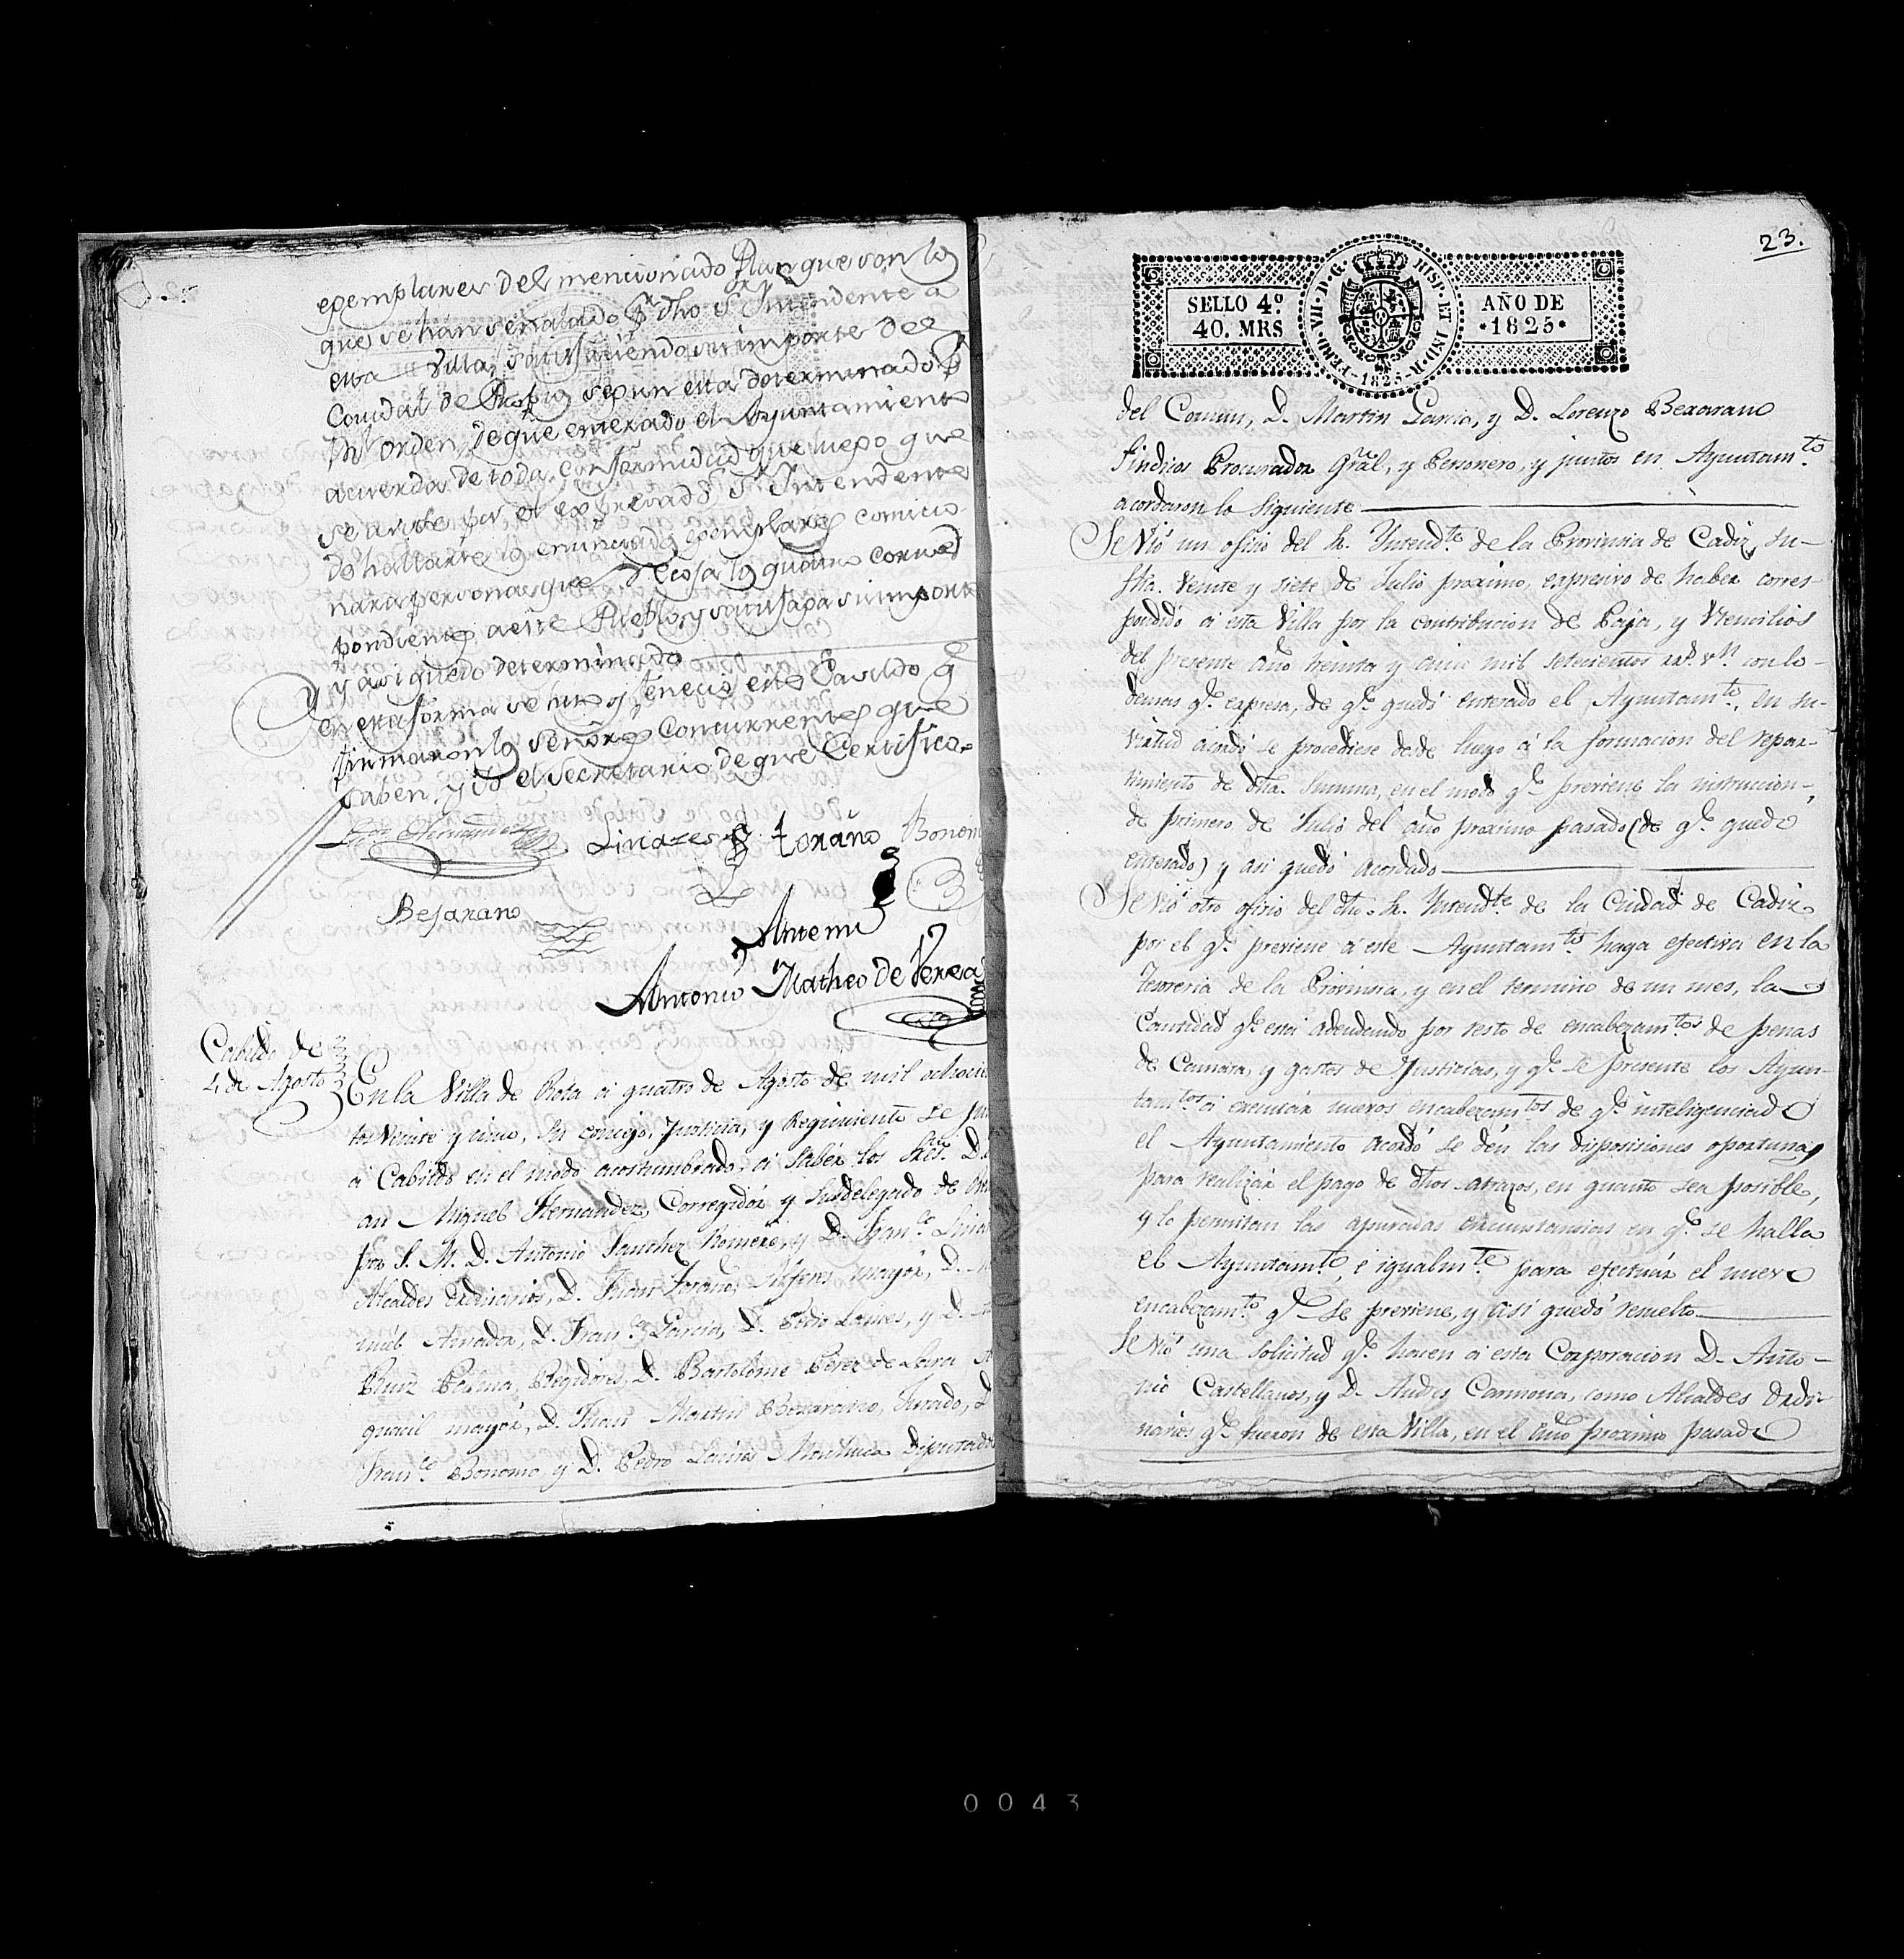 exemplares del mencionado Plan que son los
que se hán señalado pr. dho Sr. Intendente a
esta Villa, satisfaciendose su importe del
Caudal de Propios segun esta determinado pr.
Rl. orden, de que enterado el Ayuntamiento
acuerda de toda conformidad que luego que
se avise por el expresado Sr. Intendente
hallarse los enunciados exemplares comicio
nara persona que recoja los quatro corres
pondientes a este Pueblo, y satisfaga su importe
y asi quedó determinado
Y en esta forma se hizo y fenecio este Cavildo q
firmaron los Señores Concurrentes que
saben, y Yo el Secretario de que Certifico=
Hernandez
Linares
Loraño
Bonom
Bejarano
Ante mi
Antonio Matheo de Perea
Cabildo de
4 de Agosto
En la Villa de Rota á quatro de Agosto de mil ochocien
tos veinte y cinco, los Justicia, y Regimiento se jun
á Cabildo en el modo acostumbrado, á saber los Sres. D.
an Miguel Hernandez, Corregidór y Subdelegado de
por S. M. D. Antonio Sanchez Romero, y D. Franco. Lina
Alcaldes Ordinarios, D. Juan Loraño, Alferes mayór, D.
nuél Amador, D. Franco. Garcia, D. Pedro Laines, y D.
Ruiz Palma, Regidores, D. Bartolome Perez de Lara A
guacil mayór, D. Juan Martin Bexarano, Jurado, D
Franco. Bonomo y D. Pedro Laines Machuca Diputados
23.
SELLO 4º
40. MRS
FERD · VII · D · G · HISP · ET IND · R · 1825
AÑO DE
·1825·
del Comun, D. Martin Garcia, y D. Lorenzo Bexarano
Sindicos Procurador Gral, y Personero, y juntos en Ayuntamto.
acordaron lo siguiente
Se Vió un oficio del Sr. Yntendte. de la Provincia de Cadiz, su
fha. veinte y siete de Julio proximo, expresivo de haber corres
pondido á esta Villa por la contribucion de Paja, y Utensilios
del presente año treinta y cinco mil setecientos rs. vn. con lo
demas qe. expresa, de qe. quedó enterado el Ayuntamto., en su
virtud acordó se procediese desde luego á la formacion del repar-
timiento de dha. Summa, en el modo qe. previene la instruccion
de primero de Julio del año proximo pasado (de qe. quedó
enterado) y asi quedó acordado
Se Vió otro oficio del dho. Sr. Yntendte. de la Ciudad de Cadiz
por el qe. previene á este Ayuntamto. haga efectiva en la
Tesoreria de la Provincia, y en el termino de un mes, la
Cantidad qe. está adeudando por resto de encabezamtos. de penas
de Camara, y gastos de Justicias, y qe. se presente los Ayun-
tamtos. á executar nuevos encabezamtos de qe. inteligenciado
el Ayuntamiento acordó se dén las disposiciones oportunas
para realizár el pago de dhos atrazos, en quanto sea posible,
y lo permitan las apuradas circunstancias en qe. se halla
el Ayuntamto., é igualmte. para efectuár el nuevo
encabezamto. qe. se previene, y asi quedó resuelto
Se Vió una Solicitud qe. hacen á esta Corporacion D. Anto-
nio Castellanos, y D. Andres Carmona, como Alcaldes Ordi-
narios qe. fueron de esta Villa, en el año proximo pasado
0043